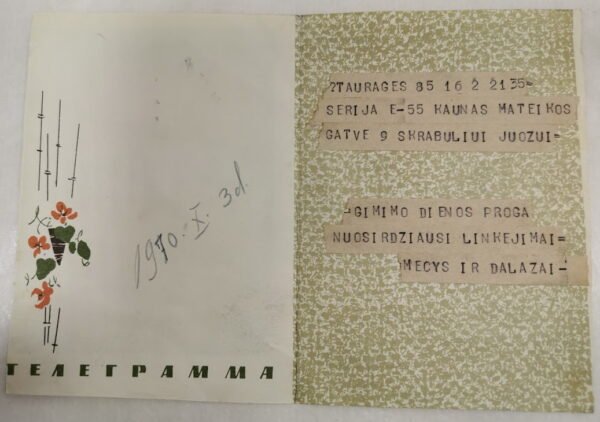 1970.-X. 3d.
ТЕЛЕГРАММА
?TAURAGES 85 16 2 2135=
SERIJA E-55 KAUNAS MATEIKOS
GATVE 9 SKRABULIUI JUOZUI=
=GIMIMO DIENOS PROGA
NUOSIRDZIAUSI LINKEJIMAI=
MECYS IR DALAZAI-